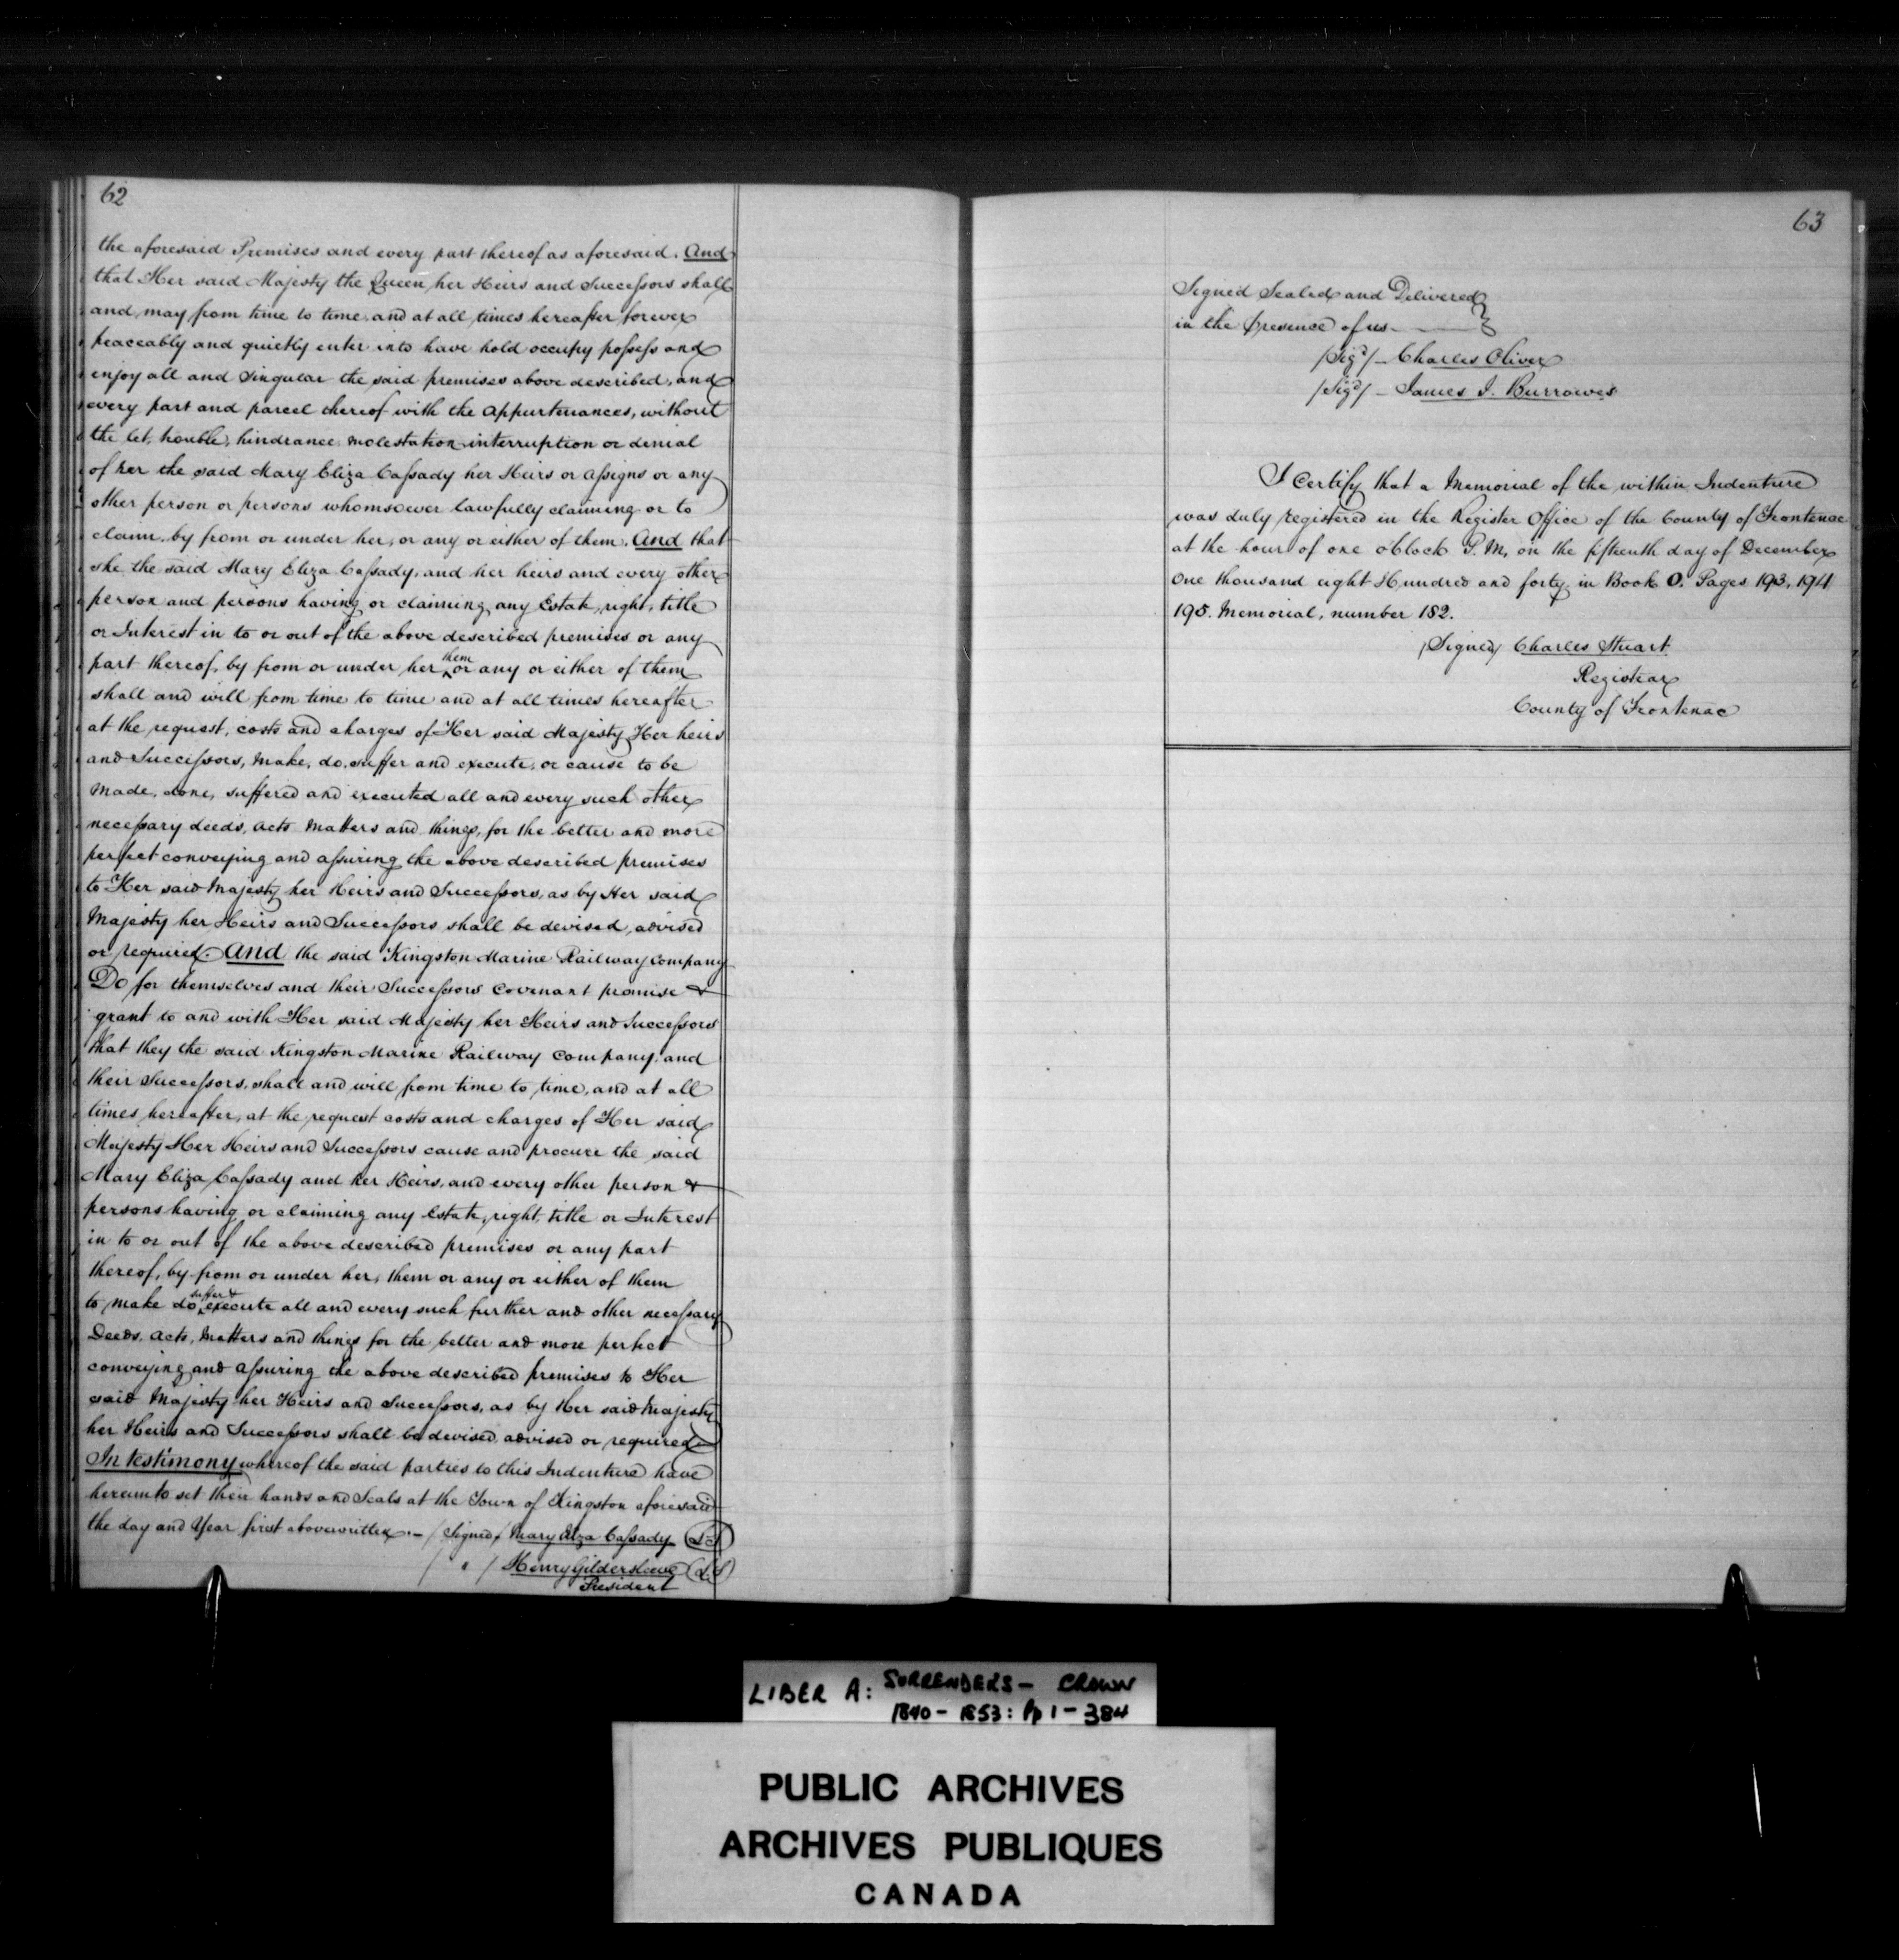 62
the aforesaid Premises and every part thereof as aforesaid. And
that Her said Majesty the Queen her Heirs and Successors shall
and may from time to time and at all times hereafter forever
peaceably and quietly enter into have hold occupy possess and
enjoy all and singular the said premises above described, and
every part and parcel thereof with the appurtenances, without
the let, trouble, hindrance molestation interruption or denial
of her the said Mary Eliza Cassady her Heirs or assigns or any
other person or persons whomsoever lawfully claiming or to
claim by from or under her, or any or either of them. And that
she the said Mary Eliza Cassady, and her heirs and every other
person and persons having or claiming any Estate, right, title
or Interest in to or out of the above described premises or any
part thereof, by from or under her them or any or either of them
shall and will from time to time and at all times hereafter
at the request, costs and charges of Her said Majesty Her heirs
and Successors, make, do, suffer and execute, or cause to be
made, done, suffered and executed all and every such other
necessary deeds, acts matters and things, for the better and more
perfect conveying and assuring the above described premises
to Her said Majesty her Heirs and Successors, as by Her said
Majesty her Heirs and Successors shall be devised, advised
or required. And the said Kingston Marine Railway Company
Do for themselves and their Successors Covenant promise &
grant to and with Her said Majesty her Heirs and Successors
that they the said Kingston Marine Railway Company and
their Successors, shall and will from time to time, and at all
times hereafter, at the request costs and charges of Her said
Majesty Her Heirs and Successors cause and procure the said
Mary Eliza Cassady and her Heirs, and every other person &
persons having or claiming any Estate, right, title or Interest
in to or out of the above described premises or any part
thereof, by from or under her, them or any or either of them
to make do suffer & execute all and every such further and other necessary
Deeds, Acts, Matters and things for the better and more perfect
conveying and assuring the above described premises to Her
said Majesty her Heirs and Successors, as by Her said Majesty
her Heirs and Successors shall be devised, advised or required
In testimony whereof the said parties to this Indenture have
hereunto set their hands and Seals at the Town of Kingston aforesaid
the day and Year first abovewritten. - / Signed / Mary Eliza Cassady (L.S)
/ " / Henry Gildersleeve (L.S)
President
63
Signed Sealed and Delivered
in the presence of us
/Sigd/ - Charles Oliver
/Sigd/ - James I. Burrowes
I Certify that a Memorial of the within Indenture
was duly registered in the Register Office of the County of Frontenac
at the hour of one o'Clock P.M, on the fifteenth day of December
One thousand eight Hundred and forty in Book O. Pages 193, 194
195. Memorial, number 182.
/Signed/ Charles Stuart
Registrar
County of Frontenac
LIBER A: SURRENDERS - CROWN
1840 - 1853: Pp 1 - 384
PUBLIC ARCHIVES
ARCHIVES PUBLIQUES
CANADA